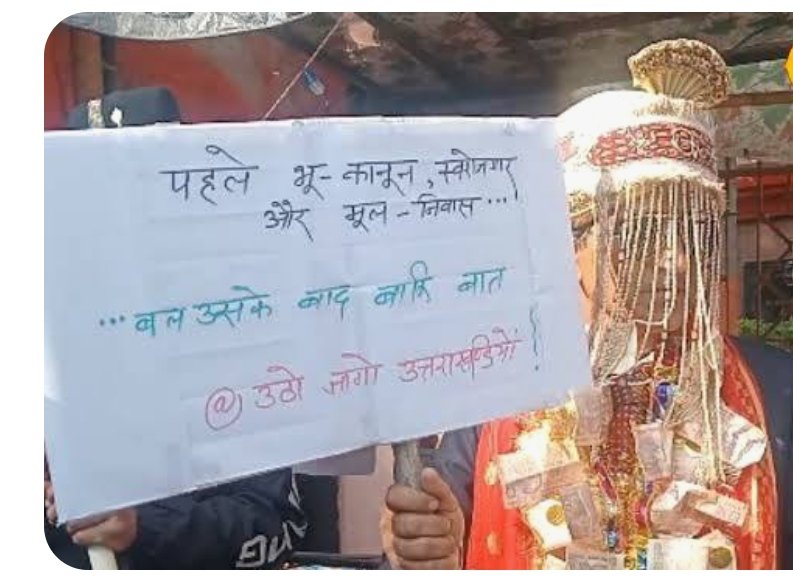 पहले भू-कानून, स्वरोजगार
और मूल-निवास...
...बल उसके बाद बाकि बात
@ उठो जागो उत्तराखण्डियों !